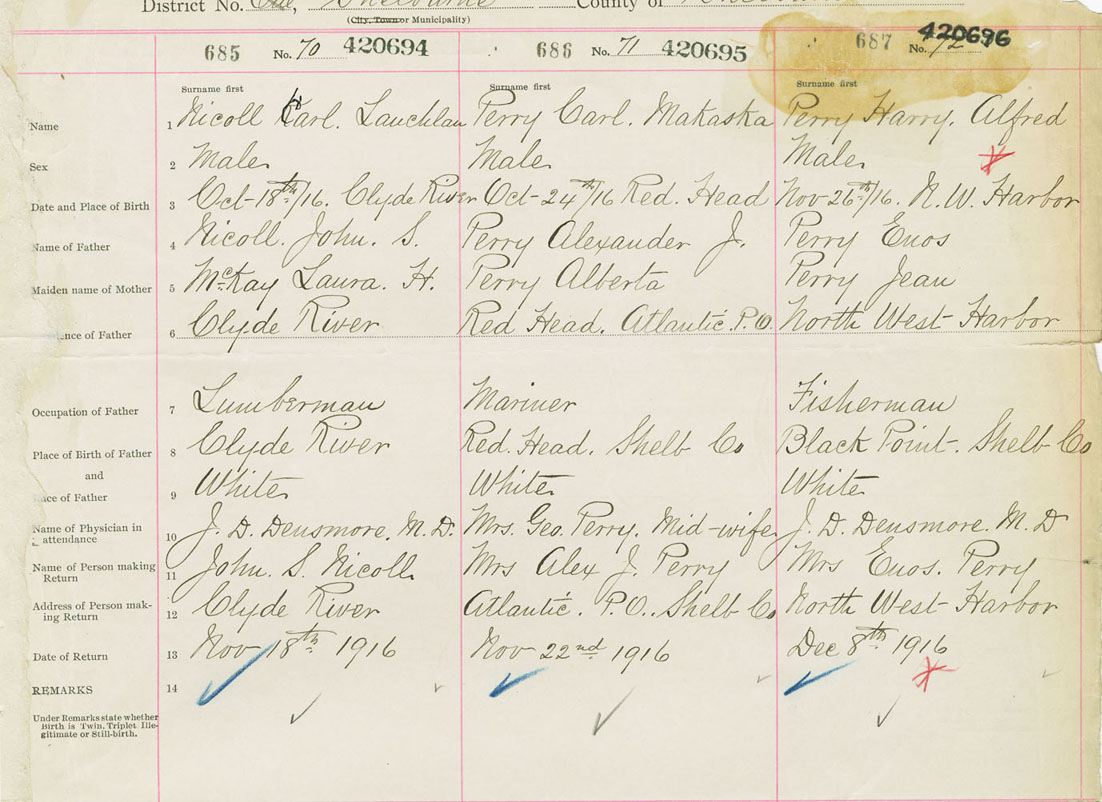 District No. One, Shelburne County of Shelburne
(City, Town or Municipality)
685 No. 70 420694 686 No. 71 420695 687 No. 72 420696
Surname first Surname first Surname first
Name 1 Nicoll Karl. Lauchlan Perry Carl. Makaska Perry Harry. Alfred
Sex 2 Male. Male. Male.
Date and Place of Birth 3 Oct-18th/16. Clyde River Oct-24th/16 Red. Head Nov-26th/16. N.W. Harbor
Name of Father 4 Nicoll. John. S. Perry Alexander J. Perry Enos
Maiden name of Mother 5 McKay Laura. H. Perry Alberta Perry Jean
ence of Father 6 Clyde River Red Head. Atlantic P.O. North West Harbor
Occupation of Father 7 Lumberman Mariner Fisherman
Place of Birth of Father 8 Clyde River Red. Head. Shelb Co Black Point. Shelb Co
and
ace of Father 9 White. White. White.
Name of Physician in attendance 10 J. D. Densmore. M. D. Mrs. Geo. Perry. Mid-wife J. D. Densmore. M. D
Name of Person making Return 11 John. S. Nicoll. Mrs Alex J. Perry Mrs Enos. Perry
Address of Person making Return 12 Clyde River Atlantic. P.O.. Shelb Co North West Harbor
Date of Return 13 Nov 18th 1916 Nov 22nd 1916 Dec 8th 1916
REMARKS 14
Under Remarks state whether
Birth is Twin, Triplet Ille-
gitimate or Still-birth.